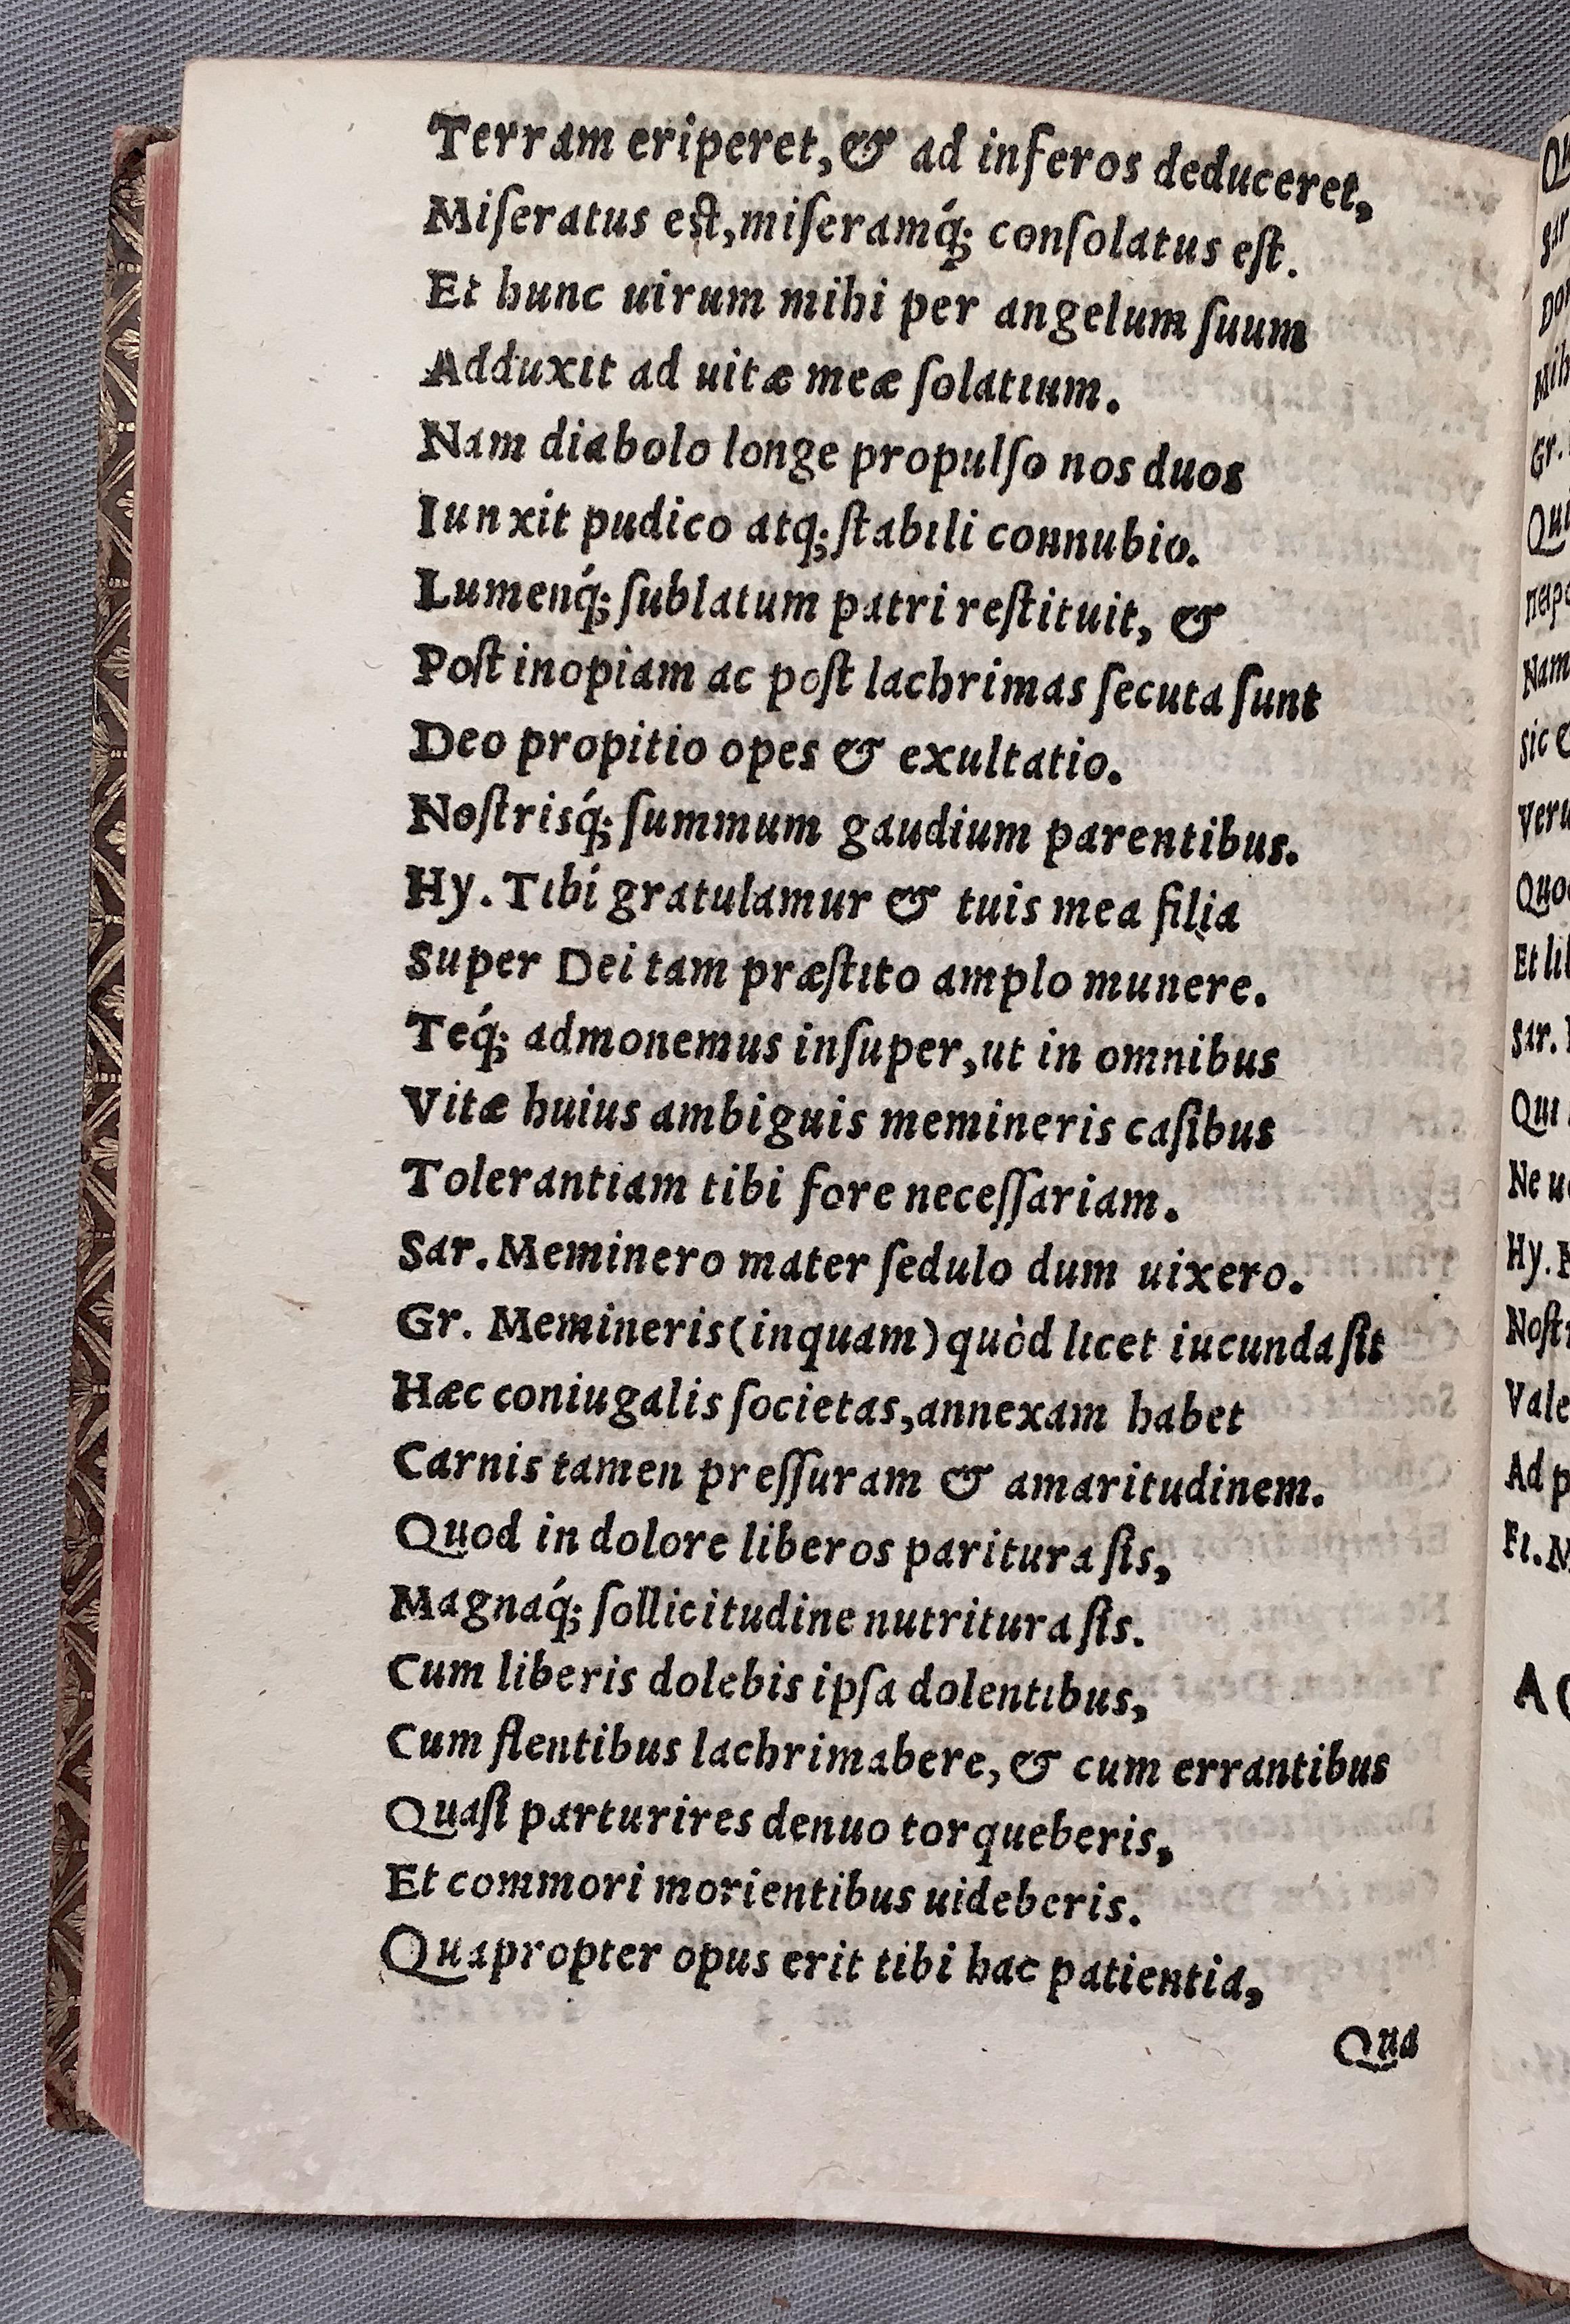 Terram eriperet, & ad inferos deduceret,
Miſeratus eſt, miſeramq́; conſolatus eſt.
Et hunc uirum mihi per angelum ſuum
Adduxit ad uitæ meæ ſolatium.
Nam diabolo longe propulſo nos duos
Iunxit pudico atq; ſtabili connubio.
Lumenq́; ſublatum patri reſtituit, &
Poſt inopiam ac poſt lachrimas ſecuta ſunt
Deo propitio opes & exultatio.
Noſtrisq́; ſummum gaudium parentibus.
Hy. Tibi gratulamur & tuis mea filia
Super Dei tam præſtito amplo munere.
Teq́; admonemus inſuper, ut in omnibus
Vitæ huius ambiguis memineris caſibus
Tolerantiam tibi fore neceſſariam.
Sar. Meminero mater ſedulo dum uixero.
Gr. Memineris (inquam) quòd licet iucunda ſit
Hæc coniugalis ſocietas, annexam habet
Carnis tamen preſſuram & amaritudinem.
Quod in dolore liberos paritura ſis,
Magnaq́; ſollicitudine nutritura ſis.
Cum liberis dolebis ipſa dolentibus,
Cum flentibus lachrimabere, & cum errantibus
Quaſi parturires denuo torqueberis,
Et commori morientibus uideberis.
Quapropter opus erit tibi hac patientia,
Qua
Gr.
Nam
Sic
Quod
Sar.
Qui
Ne
Hy.
Vale
Ad